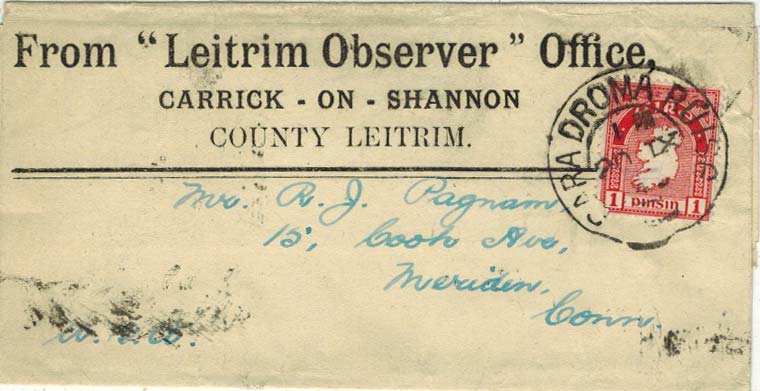 From "Leitrim Observer" Office,
CARRICK - ON - SHANNON
COUNTY LEITRIM.
CARA DROMA
1 pinsin 1
Mr. R. J. Pagnam
15, Cook Ave,
Meriden,
Conn.
U.S.A.